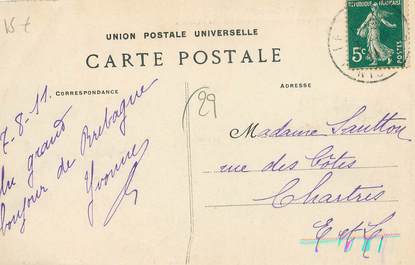 15 €
UNION POSTALE UNIVERSELLE
CARTE POSTALE
CORRESPONDANCE
ADRESSE
REPUBLIQUE FRANÇAISE
5c
POSTES
29
7-8-11
du grand
bonjour de Bretagne
Yvonne
Madame
rue des Côtes
Chartres
E et L.